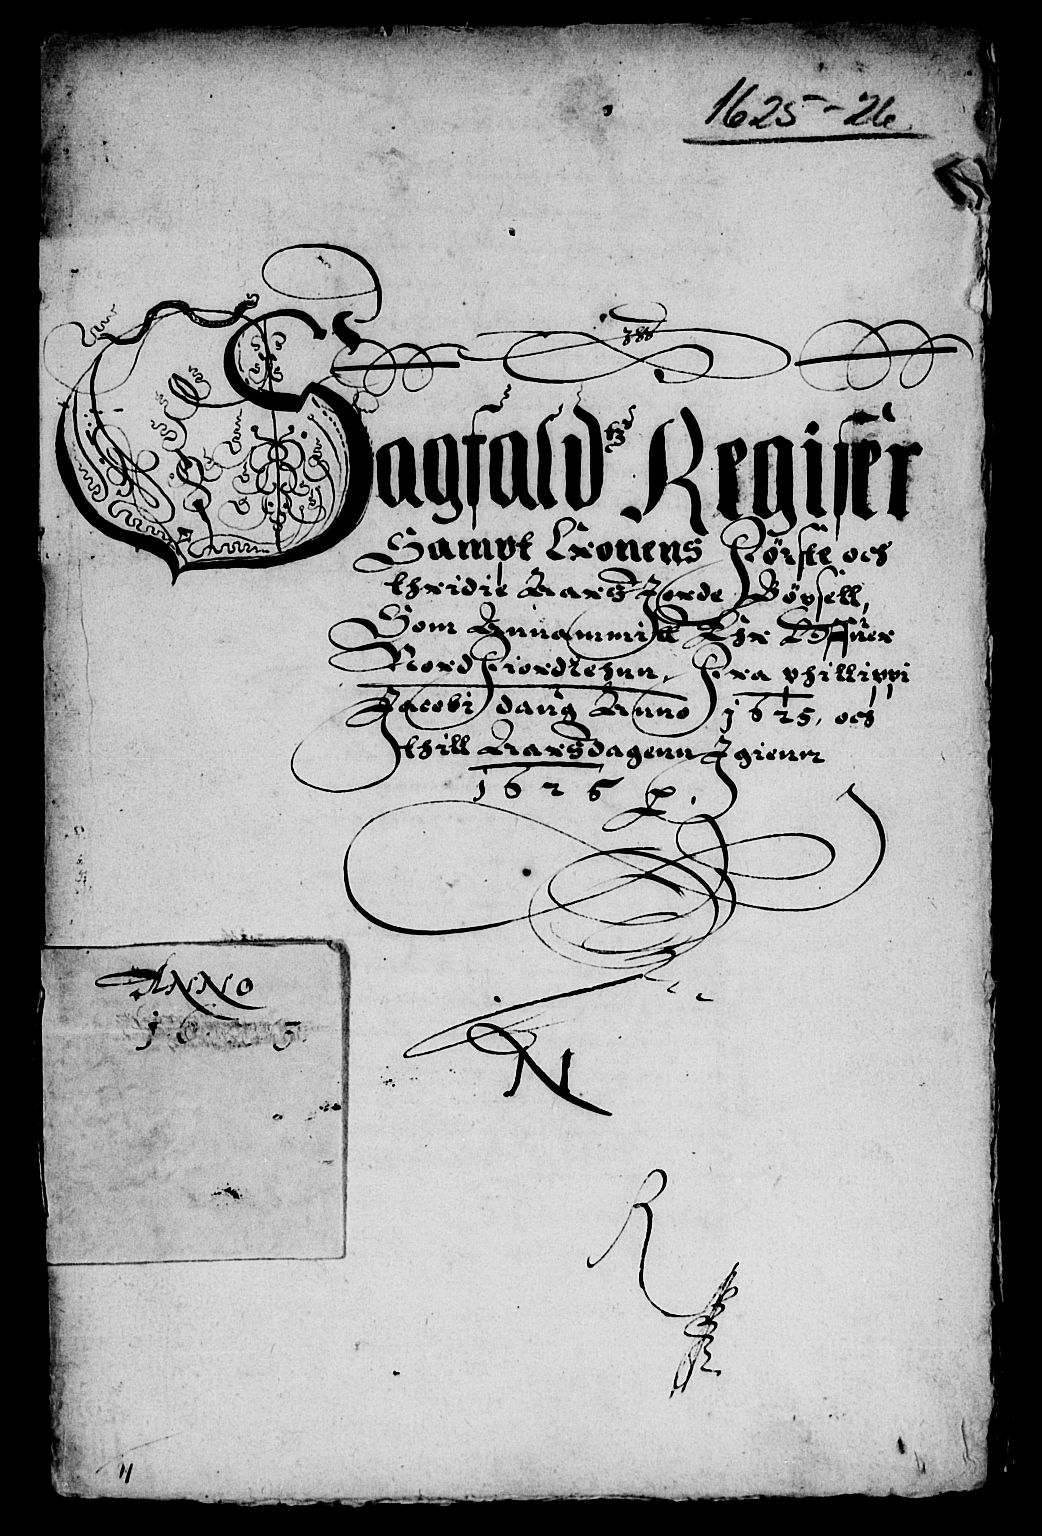 1625-26.
Sagfaldtz Register
Sampt Cronens Første och
thridie Aars Jorde Bøxsell,
Som Annammis
Nordfiordlehnn, Fra phillippi
Jacobi daug Anno 1625, och
thill Aarsdagenn Igienn
1626
ANNO
N
R